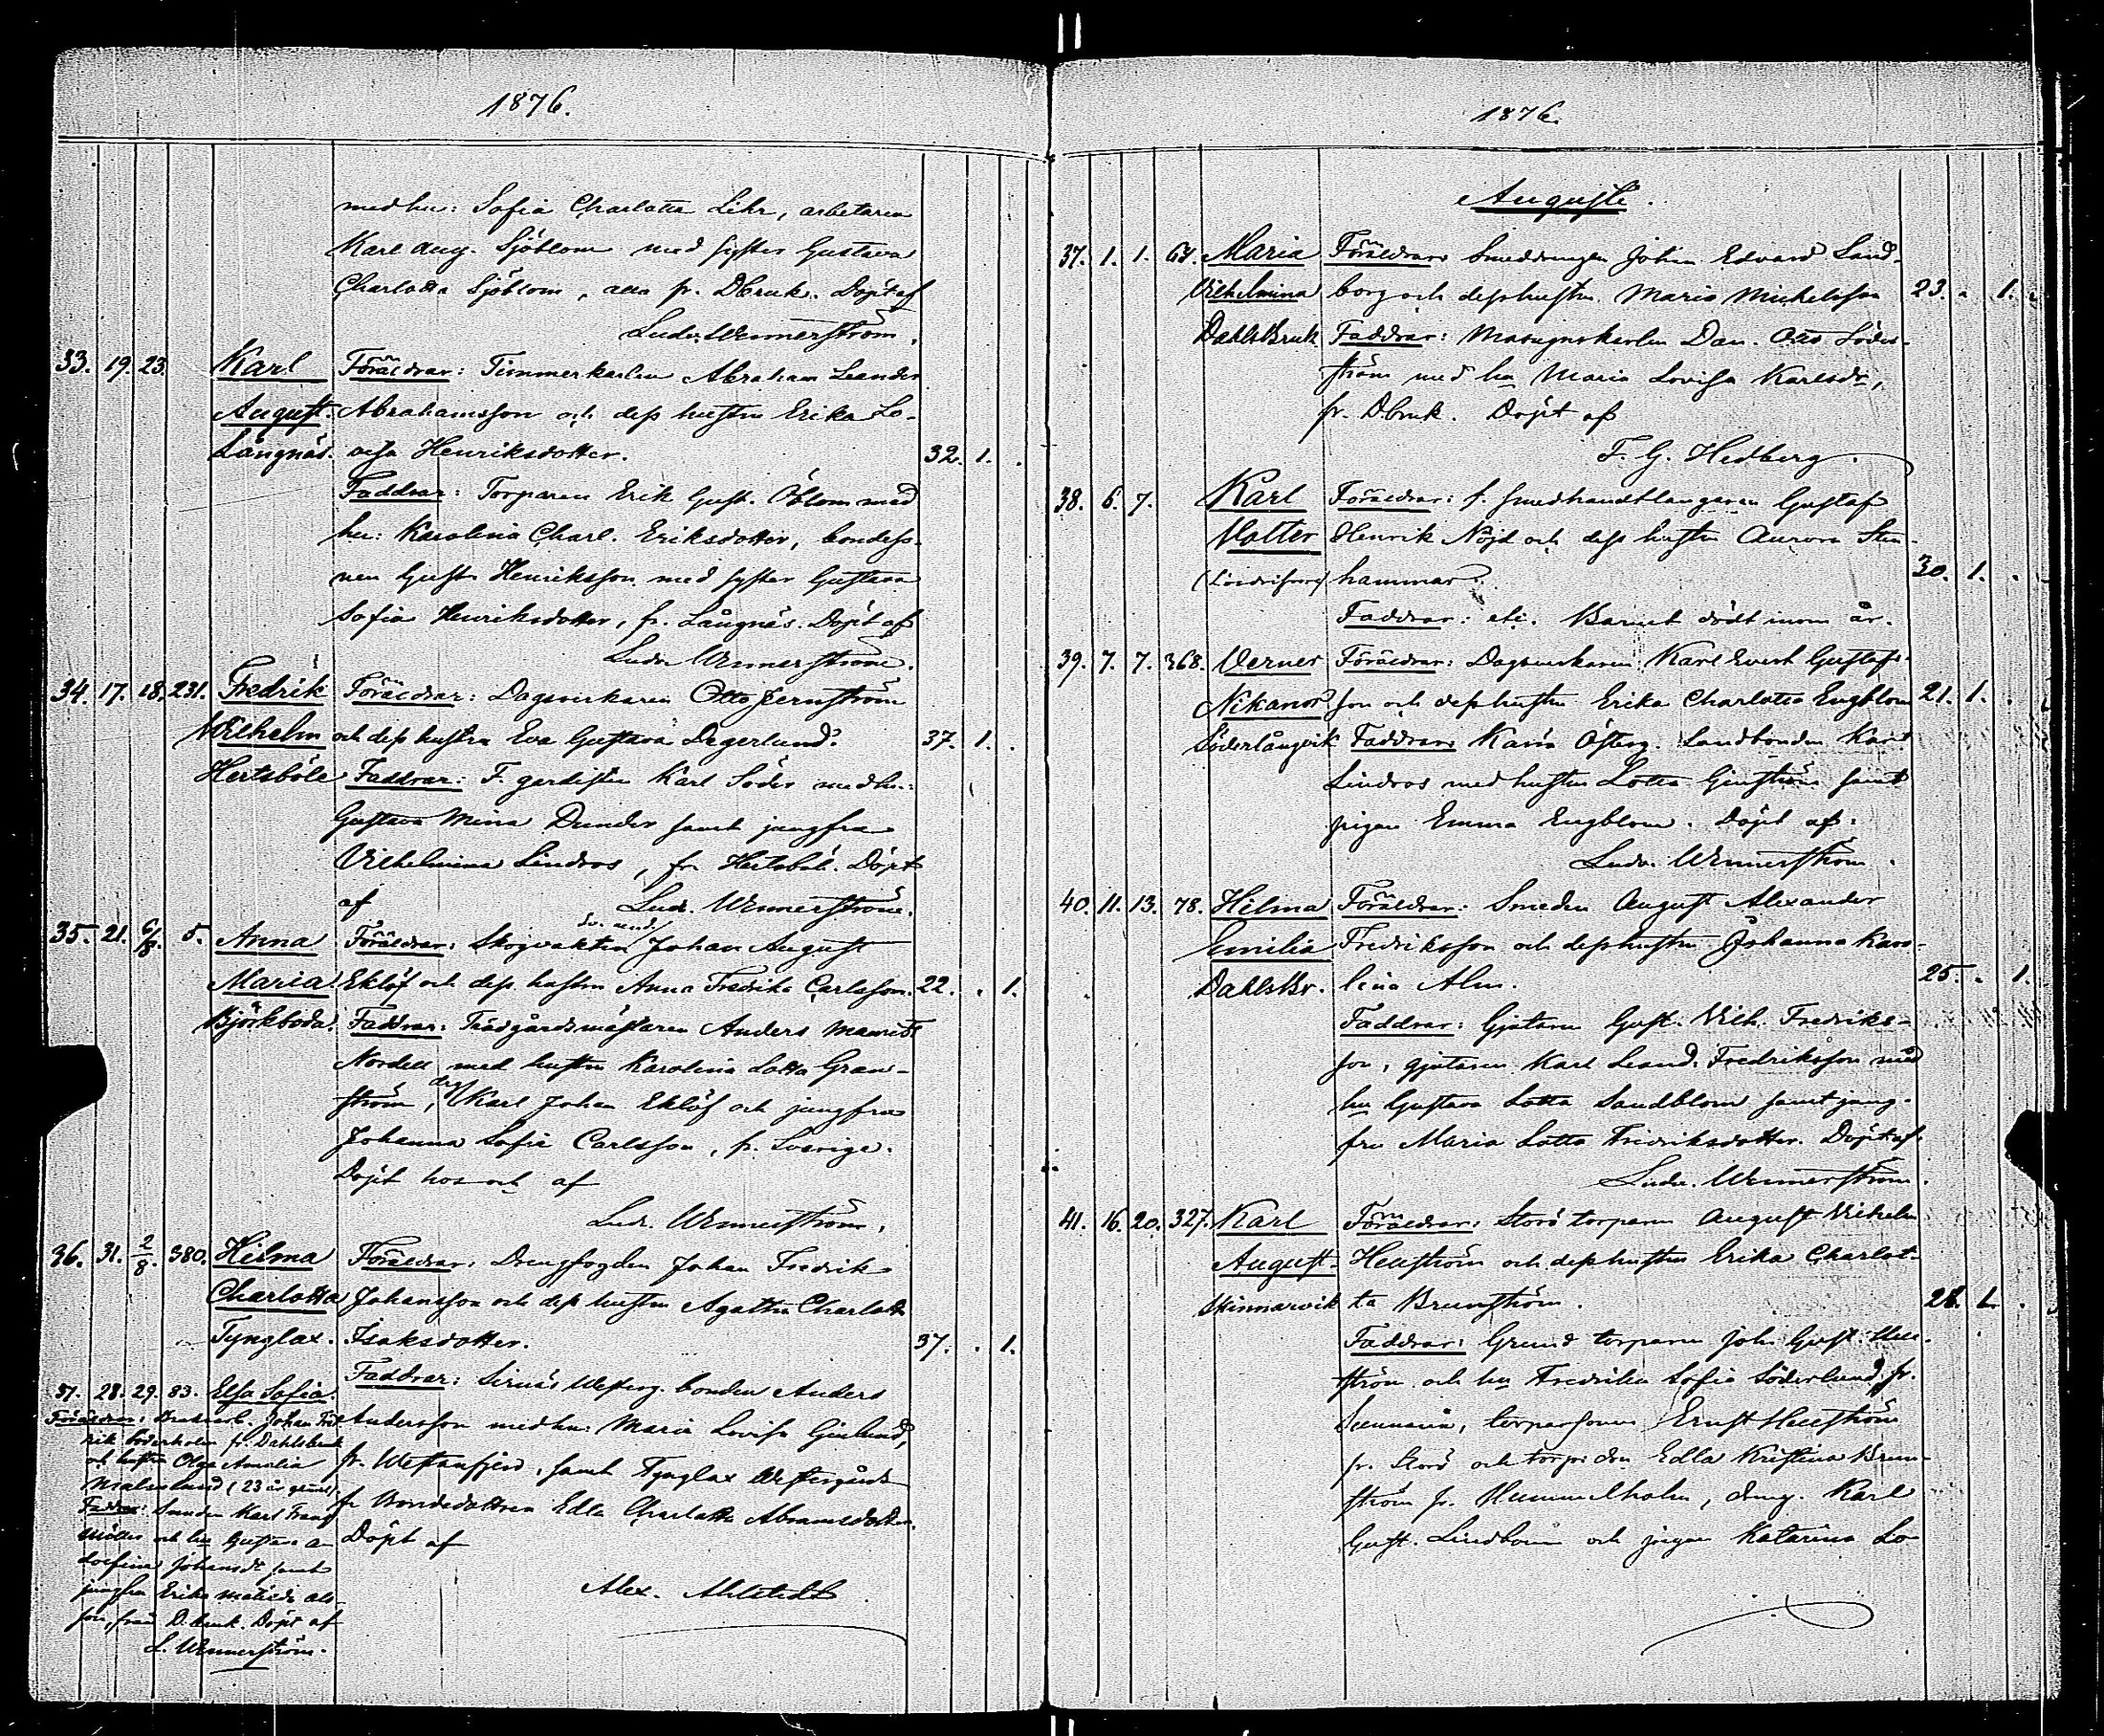 1876.
medhu: Sofia Charlotta Lihr, arbetaren
Karl Aug. Sjöblom med syster Gustava
Charlotta Sjöblom, alla fr. Dbruk. Döpt af
Ludv. Wennerström.
33. 19. 23. Karl Föräldrar: Timmerkarlen Abraham Leander
August. Abrahamsson och dess hustru Erika Lo-
Långnäs. visa Henriksdotter. 32. 1.
Faddrar: Torparen Erik Gust. Öblom med
hu: Karolina Charl. Eriksdotter, bondeso-
nen Gust. Henriksson med syster Gustava
Sofia Henriksdotter, fr. Långnäs. Döpt af
Ludv. Wennerström.
34. 17. 18. 231. Fredrik Föräldrar: Dagsverkaren Otto Jernström
Wilhelm och dess hustru Eva Gustava Degerlund. 37. 1.
Hertsböle Faddrar: F. gardisten Karl Söder medhu:
Gustava Mina Dunder samt jungfru
Vilhelmina Lindros, fr. Hertsböl. Döpt
af Ludv. Wennerström.
35. 21. 6/8. 5. Anna Föräldrar: Skogvakten Sv. und. Johan August
Maria Eklöf och dess hustru Anna Fredrika Carlsson. 22. . 1.
Björkboda. Faddrar: Trädgårdsmästaren Anders Maurits
Nordell med hustru Karolina Lotta Gran-
ström, drg Karl Johan Eklöf och jungfru
Johanna Sofia Carlsson, fr. Sverige.
Döpt hos och af
Lud. Wennerström.
36. 31. 2/8. 380. Hilma Föräldrar: Drengfogden Johan Fredrik
Charlotta Johansson och dess hustru Agatha Charlotta
Tynglax. Isaksdotter. 37. . 1.
Faddrar: Sirnäs Westerg. bonden Anders
Andersson medhu: Maria Lovisa Ginlund,
fr. Westanfjerd, samt Tynglax Westergårds
fr Bondedottren Edla Charlotta Abramsdotter.
Döpt af
Alex. Ahlstedt
37. 28. 29. 83. Elsa Sofia.
Föräldrar: Bruksarb. Johan Fred-
rik Söderholm fr. Dahlsbruk
och hustru Olga Amalia
Malmlund (23 år gammal)
Faddrar: Smeden Karl Frans
Möller och hu Gustava A
dolfina Johansdr samt
jungfru Erika Matilda Ols-
son, från D.bruk. Döpt af
L. Wennerström.
1876.
Augusti.
37. 1. 1. 63. Maria Föräldrar: Smeddrengen Johan Edvard Sand-
Vilhelmina borg och dess hustru Maria Michelsson 23. . 1.
Dahlsbruk Faddrar: Masugnskarlen Dan. Otto Söder-
ström med hu Maria Lovisa Karlsdr,
fr. Dbruk. Döpt af
F. G. Hedberg.
38. 6. 7. Karl Föräldrar: f. smedhandtlangaren Gustaf
Volter Henrik Nöjd och dess hustru Aurora Sten-
hammar. 30. 1.
Faddrar: etc. Barnet dödt inom år.
39. 7. 7. 368. Verner Föräldrar: Dagsverkaren Karl Evert Gustafs-
Nikanor son och dess hustru Erika Charlotta Engblom 21. 1.
Söderlångvik Faddrar: Kärra Österg. Landbonden Karl
Lindros med hustru Lotta Genström samt
pigan Emma Engblom. Döpt af
Ludv. Wennerström.
40. 11. 13. 78. Hilma Föräldrar: Smeden August Alexander
Emilia Fredriksson och dess hustru Johanna Karo-
Dahlsbr. lina Alm. 25. . 1.
Faddrar: Gjutaren Gust. Vilh. Fredriks-
son, gjutaren Karl Leand. Fredriksson med
hu Gustava Lotta Sandblom samt jung-
fru Maria Lotta Fredriksdotter. Döpt af
Ludv. Wennerström.
41. 16. 20. 327. Karl Föräldrar: Storö torparen August Vilhelm
August. Hellström och dess hustru Erika Charlot-
Skinnarvik ta Brunström. 28. 1.
Faddrar: Grund torparen Joh. Gust. Hell-
ström och hu Fredrika Sofia Söderlund, fr.
torparsonen Ernst Hellström
fr. Storö och torp.don Edla Kristina Brun-
ström fr. Hummelholm, dreng. Karl
Gust. Lindbom och pigan Katarina Lo-